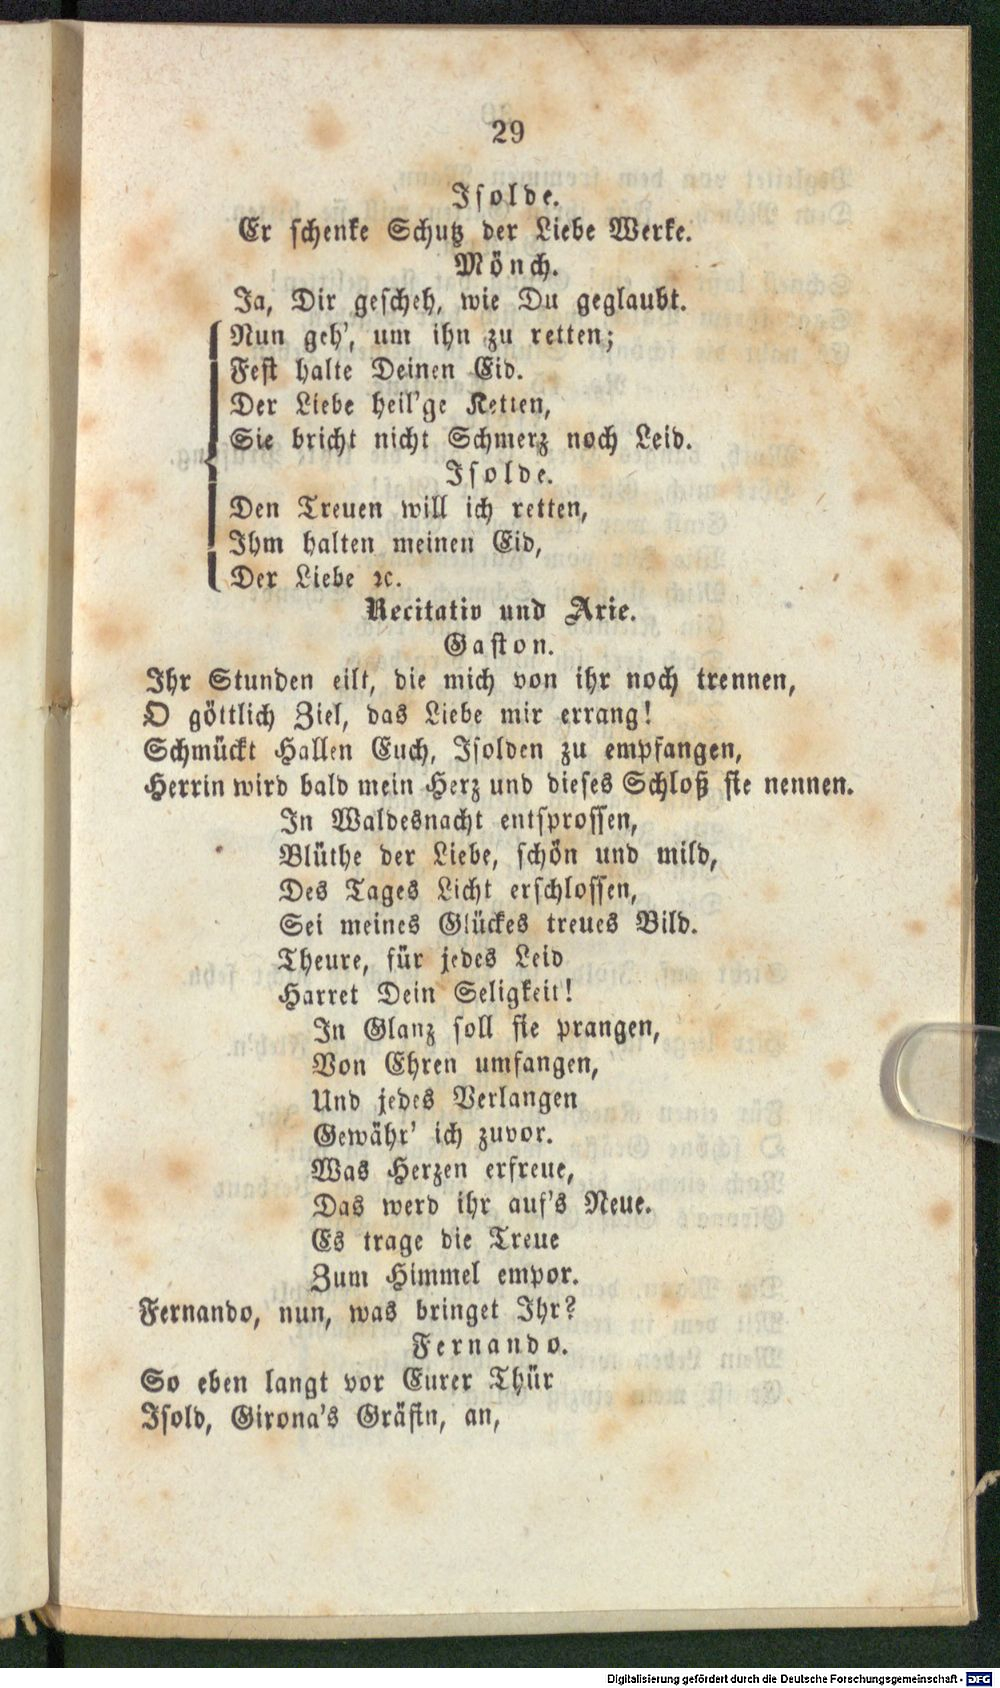 29
Isolde.
Er schenke Schutz der Liebe Werke.
Mönch.
Ja, Dir gescheh, wie Du geglaubt.
Nun geh', um ihn zu retten;
Fest halte Deinen Eid.
Der Liebe heil'ge Ketten,
Sie bricht nicht Schmerz noch Leid.
Isolde.
Den Treuen will ich retten,
Ihm halten meinen Eid,
Der Liebe ꝛc.
Recitativ und Arie.
Gaston.
Ihr Stunden eilt, die mich von ihr noch trennen,
O göttlich Ziel, das Liebe mir errang!
Schmückt Hallen Euch, Isolden zu empfangen,
Herrin wird bald mein Herz und dieses Schloß sie nennen.
In Waldesnacht entsprossen,
Blüthe der Liebe, schön und mild,
Des Tages Licht erschlossen,
Sei meines Glückes treues Bild.
Theure, für jedes Leid
Harret Dein Seligkeit!
In Glanz soll sie prangen,
Von Ehren umfangen,
Und jedes Verlangen
Gewähr' ich zuvor.
Was Herzen erfreue,
Das werd ihr auf's Neue.
Es trage die Treue
Zum Himmel empor.
Fernando, nun, was bringet Ihr?
Fernando.
So eben langt vor Eurer Thür
Isold, Girona's Gräfin, an,
Digitalisierung gefördert durch die Deutsche Forschungsgemeinschaft - DFG